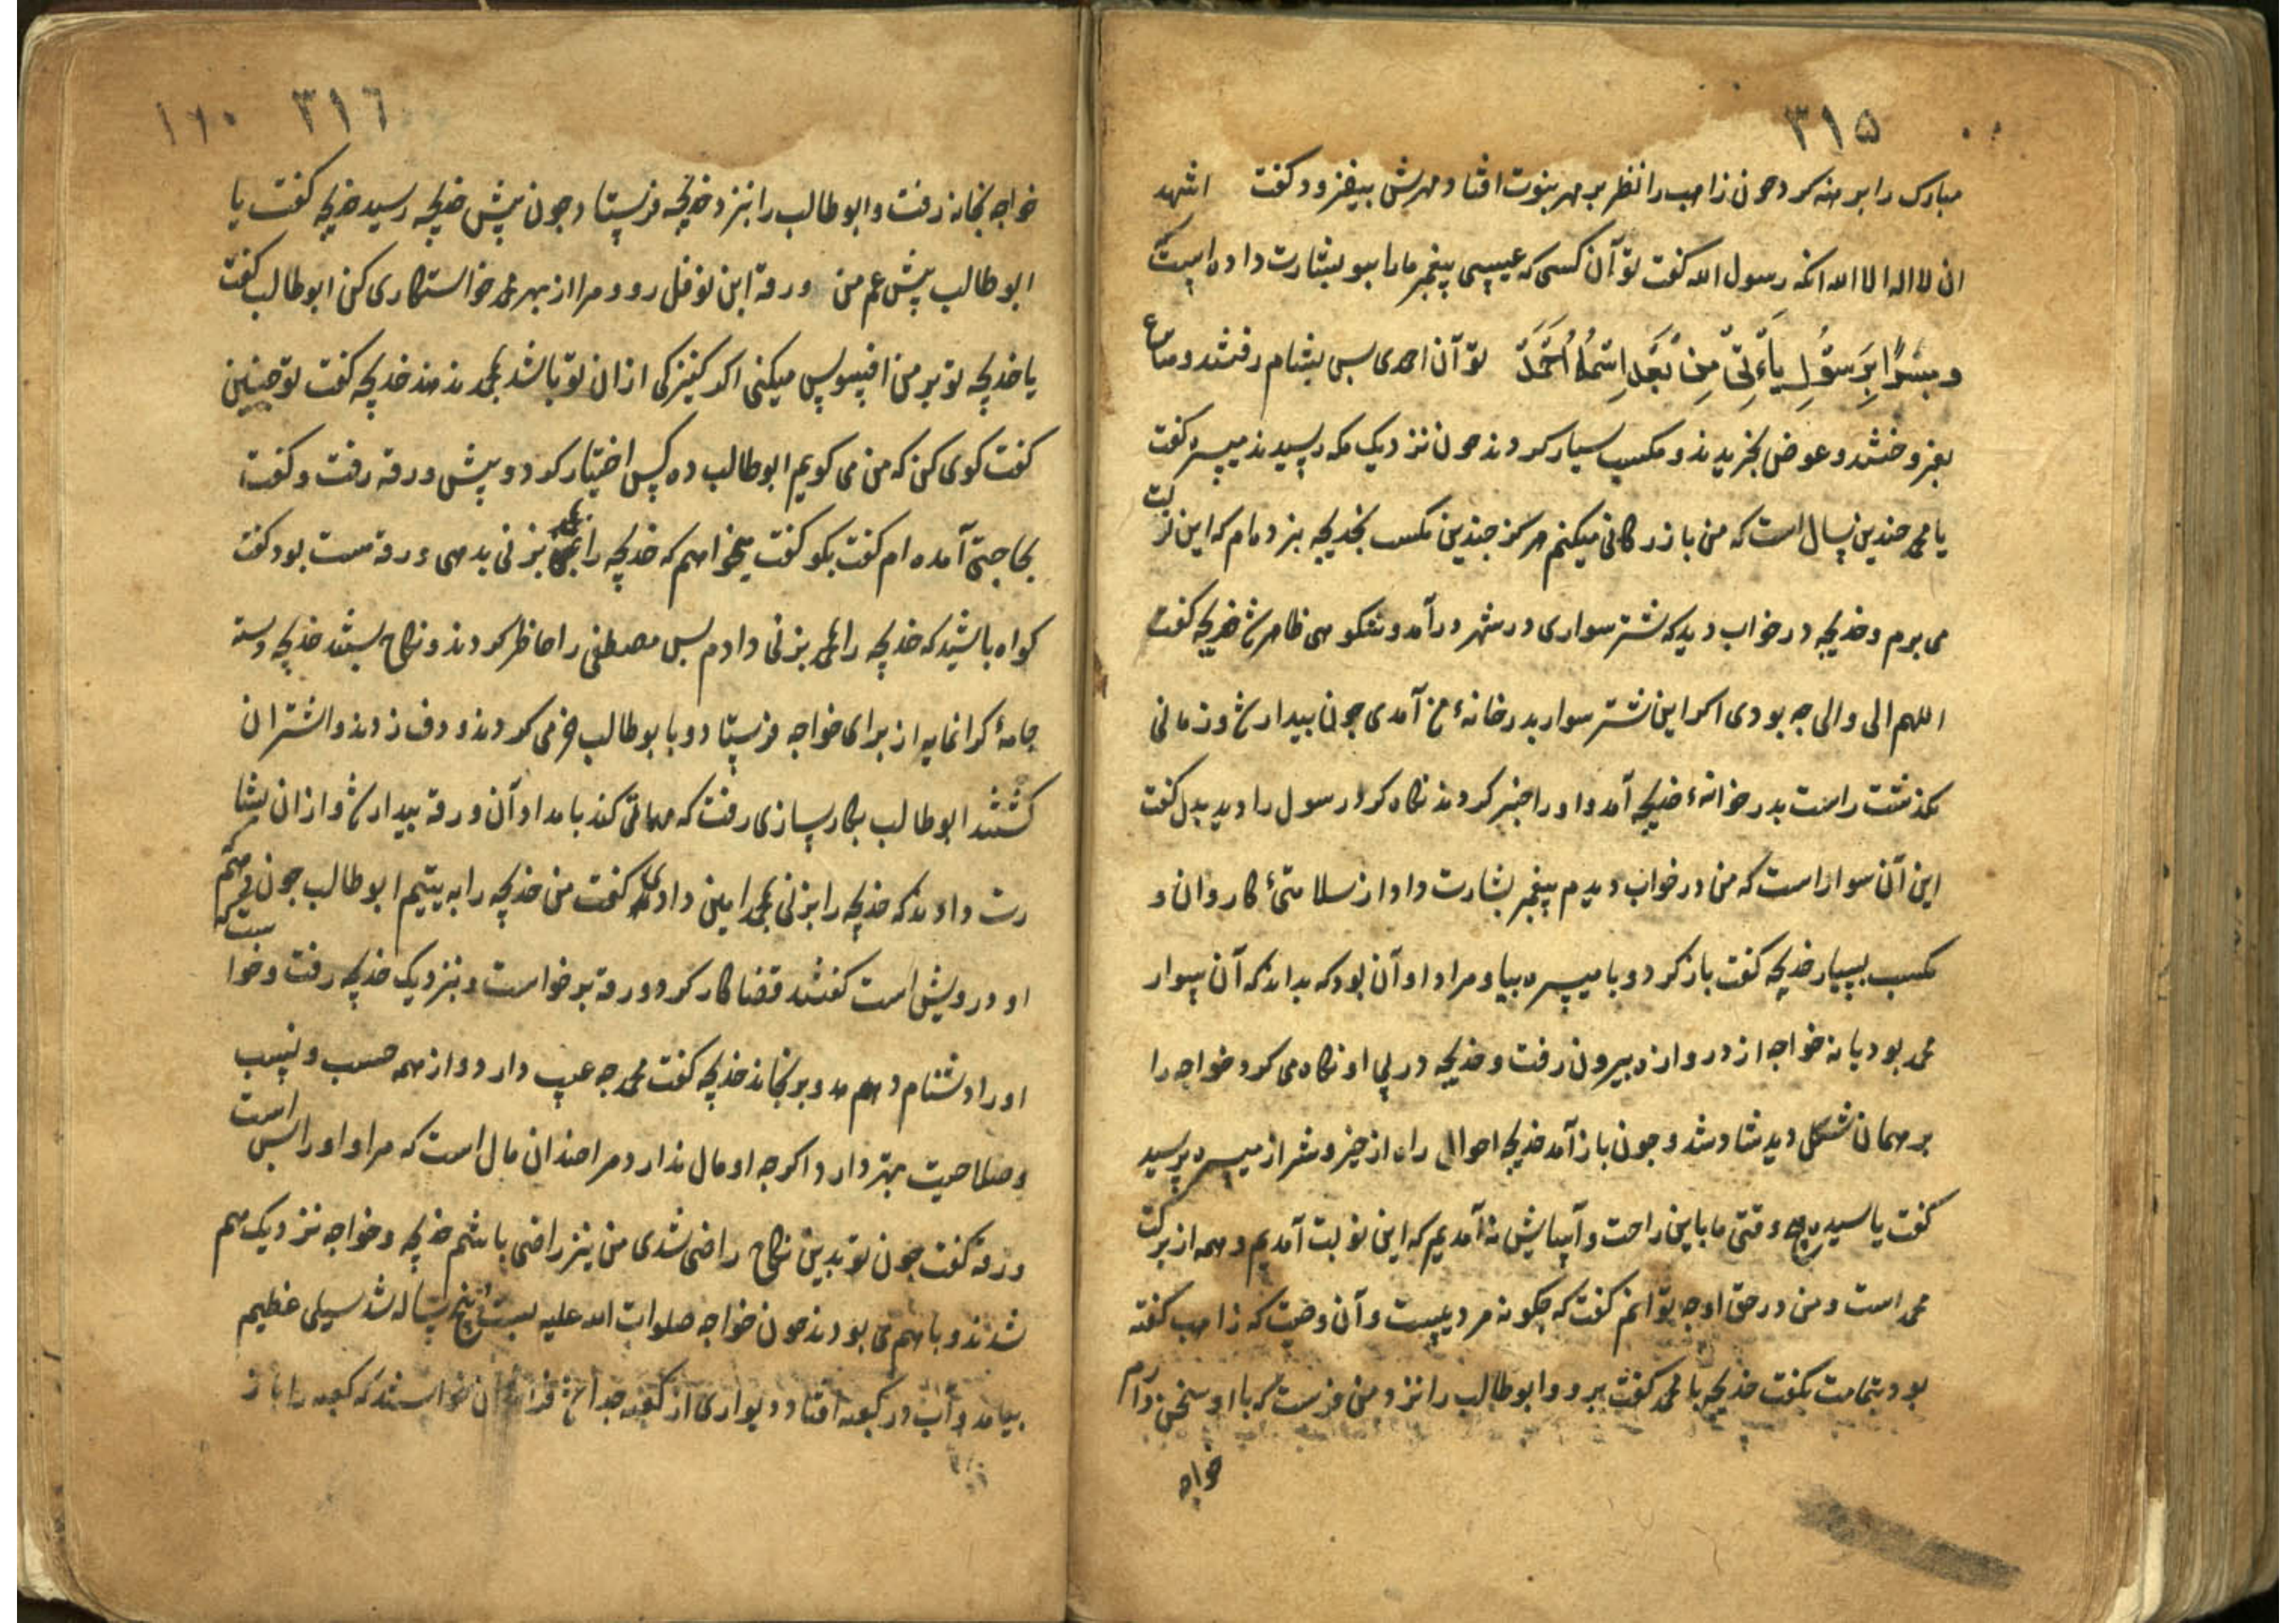 ۳۱۵
مبارک را برهنه کرد چون زاهب را نظر بر مهر بنوت افتاد مهرش بیفزود و کفت اشهد
ان لا اله الا الله انک رسول الله کفت تو آن کسی که عیسی پیغمبر ما را بتو بشارت داده است
و مبشرا برسول یأتی من بعد اسمه احمد تو آن احمدی پس بشام رفتند و متاع
بفروختند و عوض بخریدند و مکسب بسیار کردند چون نزدیک مکه رسیدند میسره کفت
یا محمد چندین سال است که من بازرکانی میکنم هرکز چندین مکسب بخدیجه نبرده ام که این نوبت
می برم و خدیجه در خواب دید که شتر سواری در شهر درآمد و نیکوهی ظاهر شد خدیجه کفت
اللهم الی والی چه بودی اکر این شتر سوار بدر خانهٔ من آمدی چون بیدار شد و زمانی
بکذشت راست بدر خوانهٔ خدیجه آمد و او را خبر کردند نکاه کرد رسول را دید بدل کفت
این آن سوار است که من در خواب دیدم پیغمبر بشارت داد از سلامتیٔ کاروان و
مکسب بسیار خدیجه کفت باز کرد و با میسره بیا و مراد او آن بود که بداند که آن سوار
محمد بود یا نه خواجه از دروازه بیرون رفت و خدیجه در پی او نکاه می کرد خواجه را
بر همان شکل دید شاد شد و چون باز آمد خدیجه احوال راه از خیر و شر از میسره پرسید
کفت یا سیده هیچ وقتی ما باین راحت و آسایش نه آمدیم که این نوبت آمدیم و همه از برکت
محمد است و من در حق او چه توانم کفت که چکونه مردیست و آن وصیت که زاهب کفته
بود بتمامت بکفت خدیجه با محمد کفت برو و ابوطالب را نزد من فرست که با او سخنی دارم
خواجه
۳۱٦ ۱٦۰
خواجه بخانه رفت و ابوطالب را بنزد خدیجه فرستاد چون پیش خدیجه رسید خدیجه کفت یا
ابوطالب پیش عم من ورقة ابن نوفل رو و مرا از بهر محمد خواستکاری کن ابوطالب کفت
یا خدیجه تو بر من افسوس میکنی اکر کنیزکی از ان تو باشد بمحمد ندهند خدیجه کفت تو چنین
کفت کوی کن که من می کویم ابوطالب ده کس اختیار کرد و پیش ورقه رفت و کفت
بحاجتی آمده ام کفت بکو کفت میخواهم که خدیجه را بمحمد بزنی بدهی ورقه مست بود کفت
کواه باشید که خدیجه را بمحمد بزنی دادم پس مصطفی را حاظر کردند و نکاح بستند خدیجه دسته
جامهٔ کرانمایه از برای خواجه فرستاد و با بوطالب خرمی کردند و دف زدند و اشتران
کشتند ابوطالب بکارسازی رفت که مهمانی کند بامداد آن ورقه بیدار شد و از ان بشا
رت دادند که خدیجه را بزنی بمحمد امین دادی کفت من خدیجه را به یتیم ابوطالب چون دهم که
او درویش است کفتند قضا کار کرد ورقه برخواست و بنزدیک خدیجه رفت و خواست که
او را دشنام دهد و برنجاند خدیجه کفت محمد چه عیب دارد و از همه حسب و نسب
و صلاحیت بهتر دارد اکرچه او مال ندارد مرا چندان مال است که مرا و او را بس است
ورقه کفت چون تو بدین نکاح راضی شدی من نیز راضی باشم خدیجه و خواجه نزدیک هم
شدند و با هم می بودند چون خواجه صلوات الله علیه بیست و پنج ساله شد سیلی عظیم
بیامد و آب در کعبه افتاد و دیواری از کعبه جدا شد خواستند که کعبه را باز